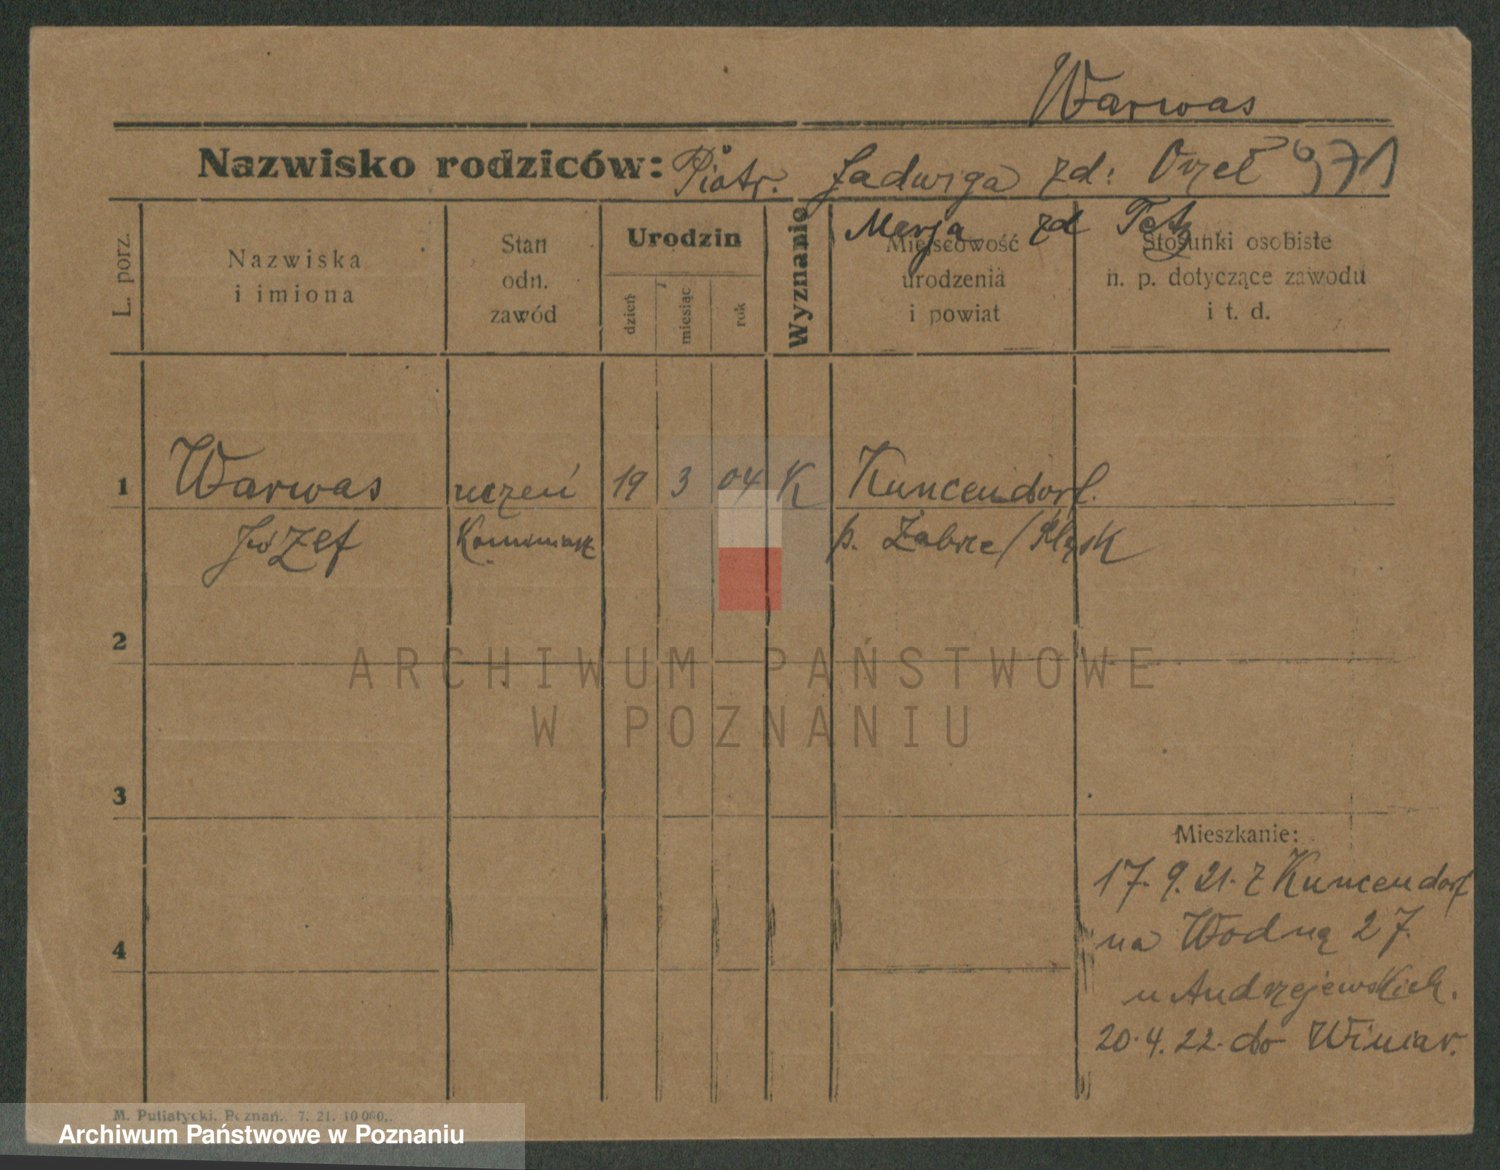 Warwas
Nazwisko rodziców: Piotr. Jadwiga zd: Orzeł 971
Marja zd Tetz
L. porz.
Nazwiska
i imiona
Stan
odn.
zawód
Urodzin
dzień
miesiąc
rok
Wyznanie
Miejscowość
urodzenia
i powiat
Stosunki osobiste
n. p. dotyczące zawodu
i t. d.
1 Warwas uczeń 19 3 04 K Kuncendorf.
Józef Kominiarz p. Zabrze/Śląsk
2
ARCHIWUM PAŃSTWOWE
W POZNANIU
3
Mieszkanie:
17. 9. 21. z Kuncendorf
na Wodną 27.
4
u Andrzejewskich.
20. 4. 22. do Winiar.
M. Putiatycki, Poznań. 7. 21. 10 000.
Archiwum Państwowe w Poznaniu